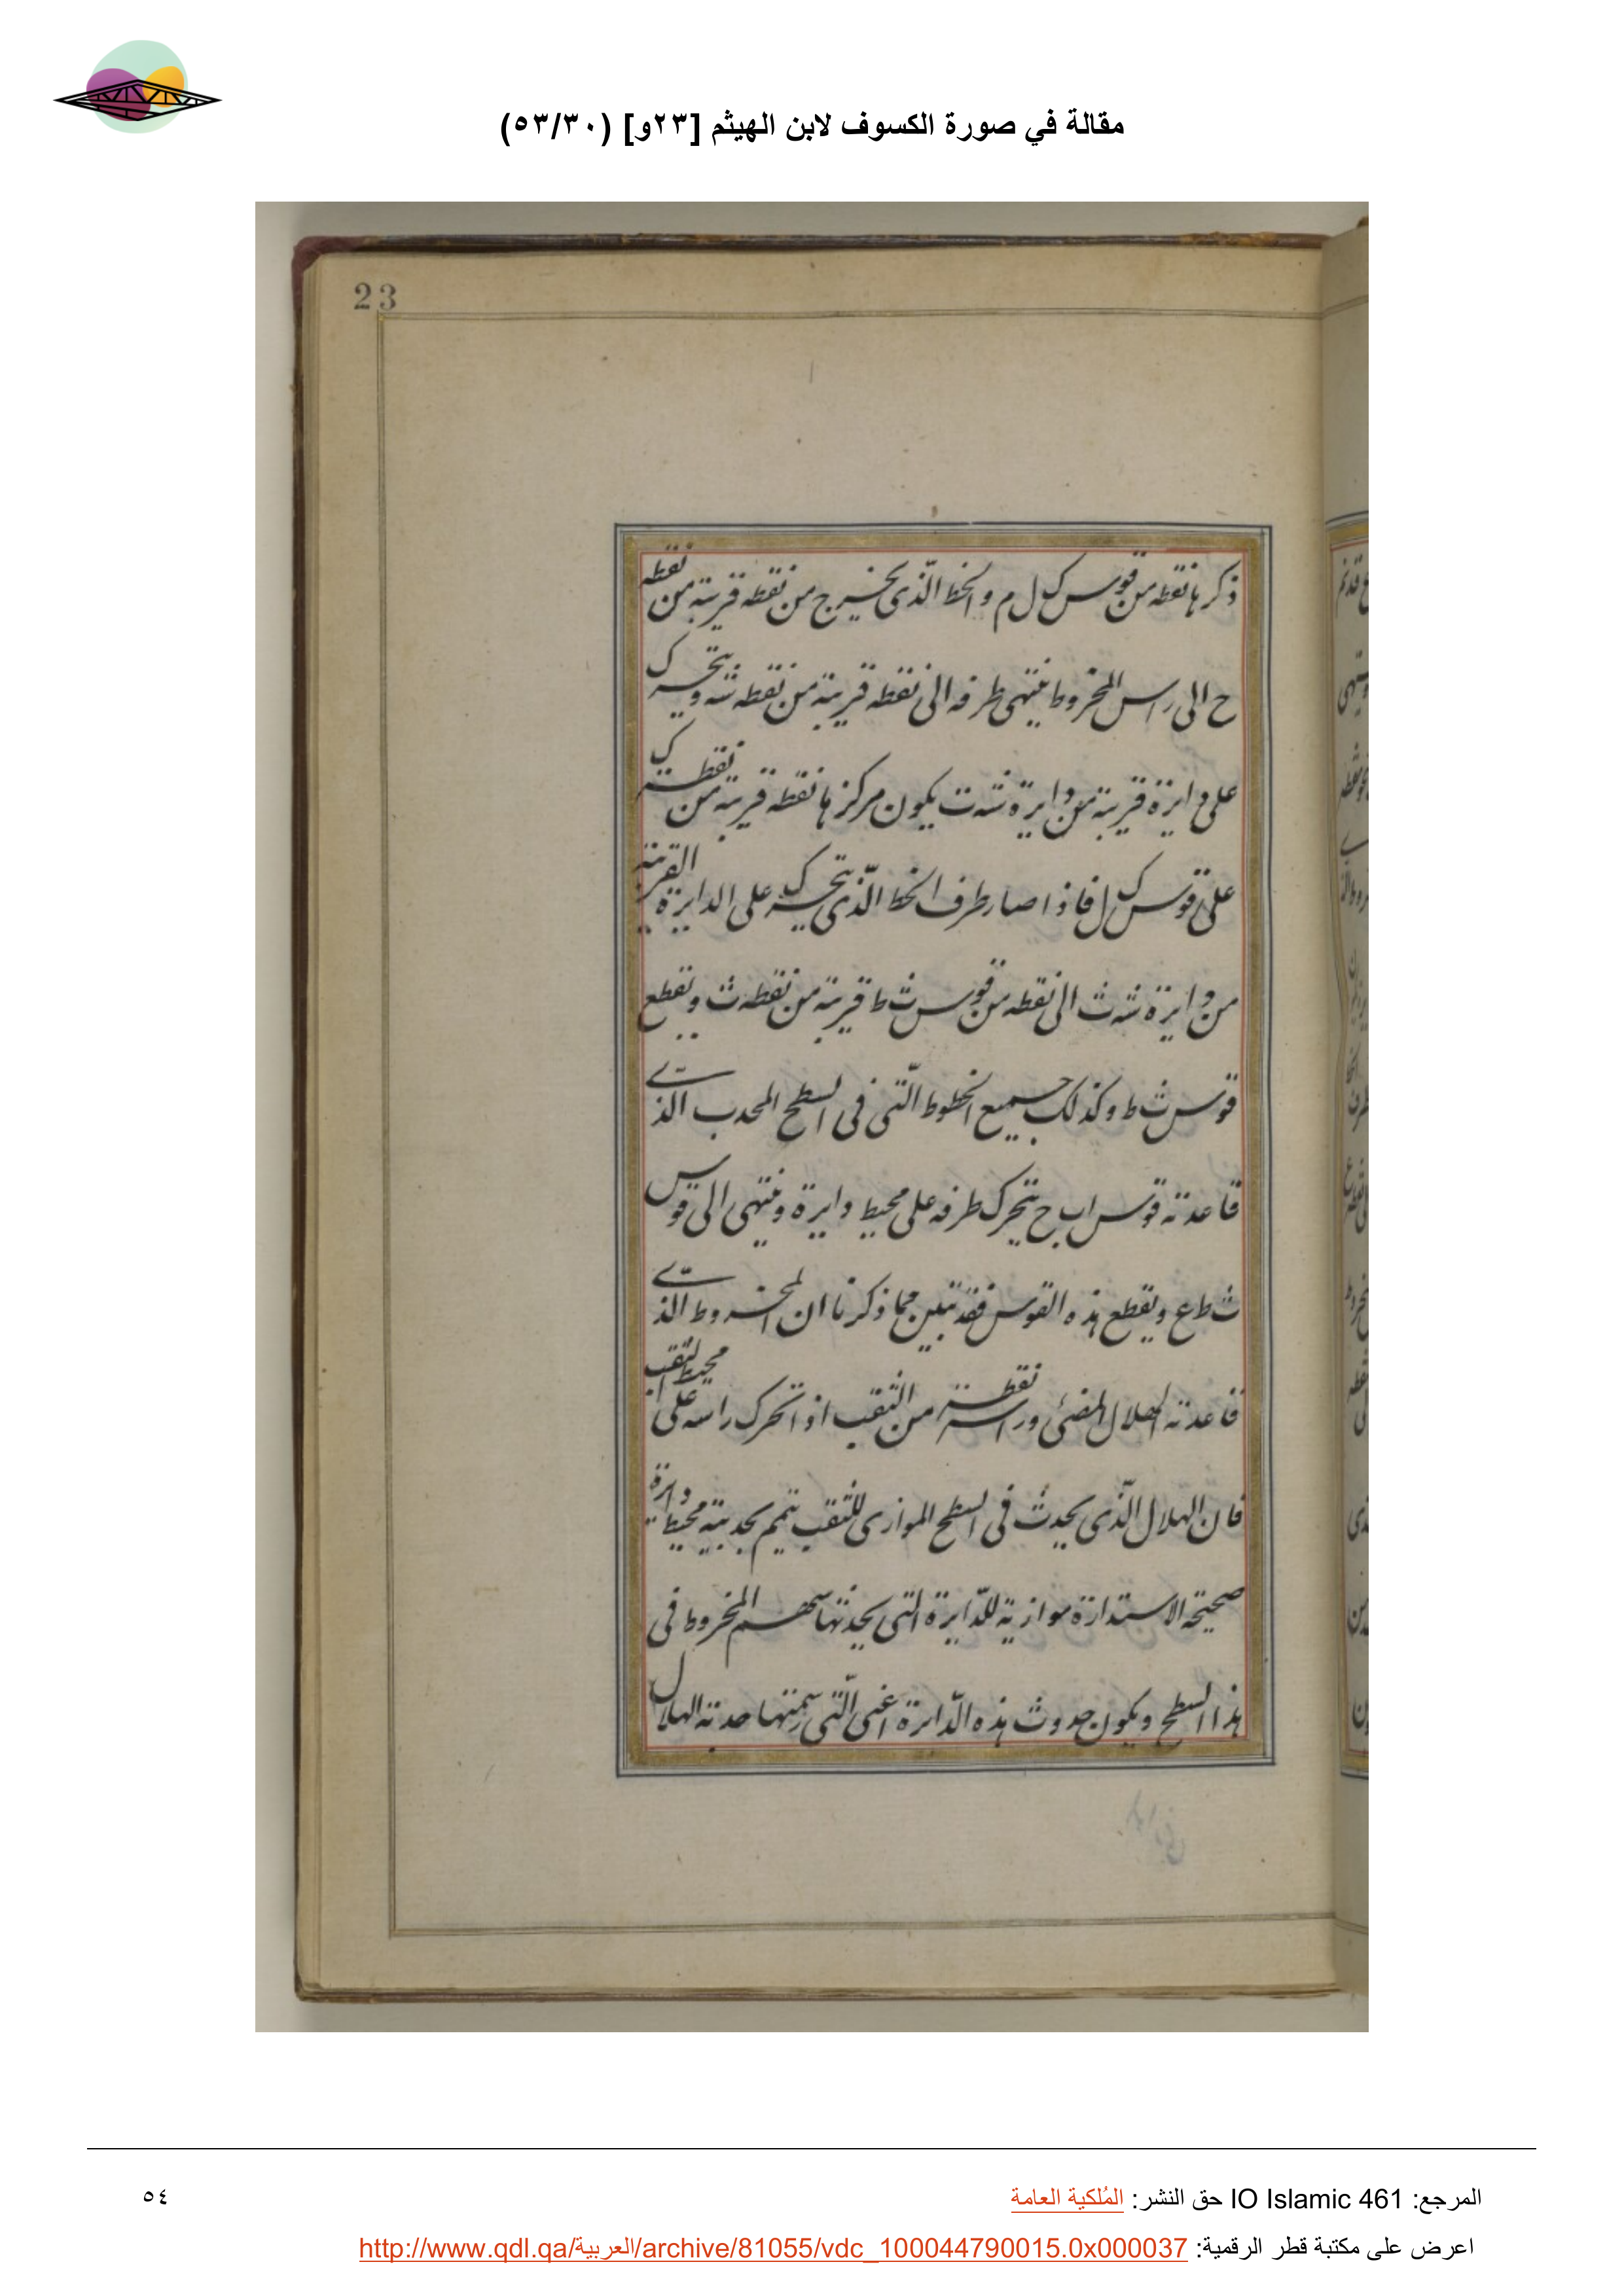 مقالة في صورة الكسوف لابن الهيثم [٢٣و] (٥٣/٣٠)
23
ذكرها نقطه من قوس ك ل م والخط الّذى يخرج من نقطه قريبة من نقطه
ح الى راس المخروط ينتهى طرفه الى نقطه قريبة من نقطه شه ويتحرك
على دايرة قريبة من دايرة شه ت يكون مركزها نقطه قريبة من نقطة ك
على قوس ك ل فاذا صار طرف الخط الّذى يتحرك على الدايرة القريبة
من دايرة شه ث الى نقطه من قوس ث ط قريبة من نقطه ث ويقطع
قوس ث ط وكذلك جميع الخطوط الّتى فى السطح المحدب الذى
قاعدته قوس ا ب ح يتحرك طرفه على محيط دايرة وينتهى الى قوس
ث ط ع ويقطع هذه القوس فقد تبين مما ذكرنا ان المخروط الذى
قاعدته الهلال المضئ وراسه نقطة من الثقب اذا تحرك راسه على محيط الثقب
فان الهلال الّذى يحدث فى السطح الموازى للثقب يتمم بحدبيته محيط دايرة
صحيحة الاستدارة موازية للدّايرة التى يحدثها سهم المخروط فى
هذا السطح ويكون حدوث هذه الدّايرة اعنى الّتى رسمتها حدبة الهلال
المرجع: IO Islamic 461 حق النشر: المُلكية العامة
٥٤
اعرض على مكتبة قطر الرقمية: http://www.qdl.qa/العربية/archive/81055/vdc_100044790015.0x000037